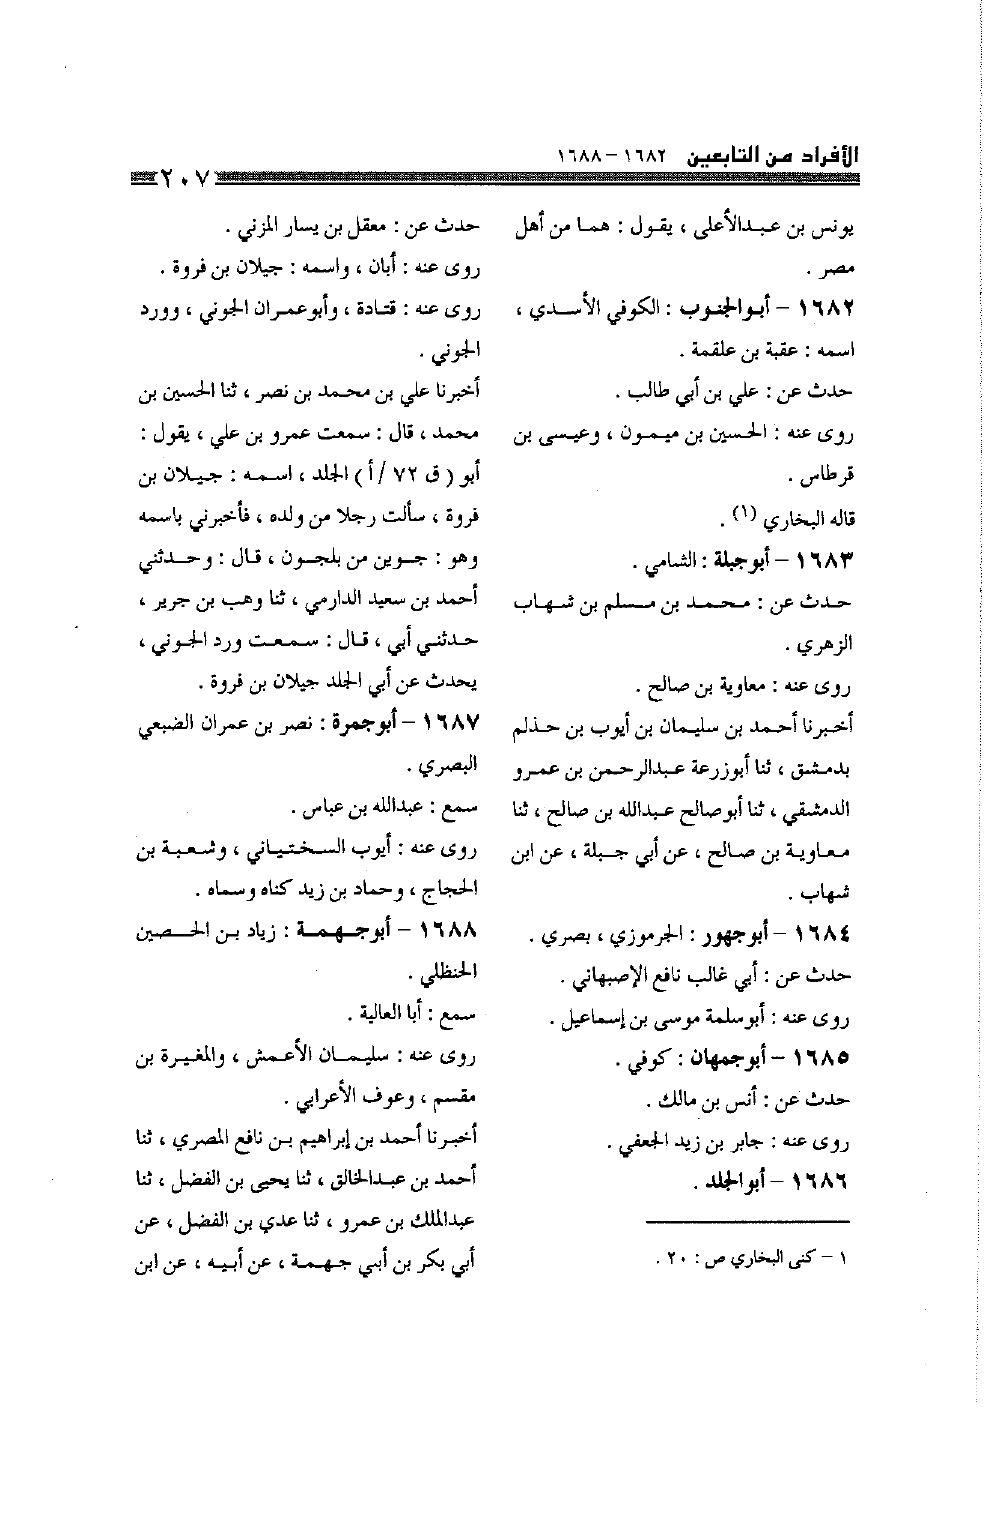 الأفراد من التابعين ١٦٨٢ – ١٦٨٨
٢٠٧
يونس بن عبدالأعلى ، يقول : هما من أهل
مصر .
١٦٨٢ – أبوالجنوب : الكوفي الأسدي ،
اسمه : عقبة بن علقمة .
حدث عن : علي بن أبي طالب .
روى عنه : الحسين بن ميمون ، وعيسى بن
قرطاس .
قاله البخاري (١) .
١٦٨٣ – أبوجبلة : الشامي .
حدث عن : محمد بن مسلم بن شهاب
الزهري .
روى عنه : معاوية بن صالح .
أخبرنا أحمد بن سليمان بن أيوب بن حذلم
بدمشق ، ثنا أبوزرعة عبدالرحمن بن عمرو
الدمشقي ، ثنا أبوصالح عبدالله بن صالح ، ثنا
معاوية بن صالح ، عن أبي جبلة ، عن ابن
شهاب .
١٦٨٤ – أبوجهور : الجرموزي ، بصري .
حدث عن : أبي غالب نافع الإصبهاني .
روى عنه : أبوسلمة موسى بن إسماعيل .
١٦٨٥ – أبوجمهان : كوفي .
حدث عن : أنس بن مالك .
روى عنه : جابر بن زيد الجعفي .
١٦٨٦ – أبوالجلد .
١ – كنى البخاري ص : ٢٠ .
حدث عن : معقل بن يسار المزني .
روى عنه : أبان ، واسمه : جيلان بن فروة .
روى عنه : قتادة ، وأبوعمران الجوني ، وورد
الجوني .
أخبرنا علي بن محمد بن نصر ، ثنا الحسين بن
محمد ، قال : سمعت عمرو بن علي ، يقول :
أبو ( ق ٧٢ /أ ) الجلد ، اسمه : جيلان بن
فروة ، سألت رجلا من ولده ، فأخبرني باسمه
وهو : جوين من بلجون ، قال : وحدثني
أحمد بن سعيد الدارمي ، ثنا وهب بن جرير ،
حدثني أبي ، قال : سمعت ورد الجوني ،
يحدث عن أبي الجلد جيلان بن فروة .
١٦٨٧ – أبوجمرة : نصر بن عمران الضبعي
البصري .
سمع : عبدالله بن عباس .
روى عنه : أيوب السختياني ، وشعبة بن
الحجاج ، وحماد بن زيد كناه وسماه .
١٦٨٨ – أبوجهمة : زياد بن الحصين
الحنظلي .
سمع : أبا العالية .
روى عنه : سليمان الأعمش ، والمغيرة بن
مقسم ، وعوف الأعرابي .
أخبرنا أحمد بن إبراهيم بن نافع المصري ، ثنا
أحمد بن عبدالخالق ، ثنا يحيى بن الفضل ، ثنا
عبدالملك بن عمرو ، ثنا عدي بن الفضل ، عن
أبي بكر بن أبي جهمة ، عن أبيه ، عن ابن